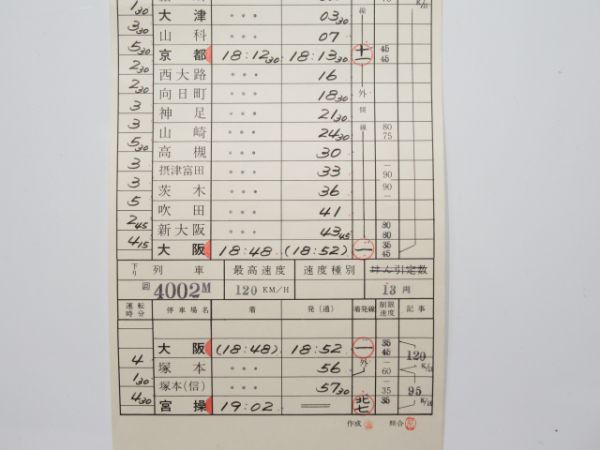 1 30 大津 ・・・ 03 30 線
3 30 山科 ・・・ 07
5 30 京都 18:12 30 18:13 30 十一 45 45
2 30 西大路 ・・・ 16
2 30 向日町 ・・・ 18 30 外
3 神足 ・・・ 21 30 側
3 山崎 ・・・ 24 30 線 80 75
5 30 高槻 ・・・ 30
3 摂津富田 ・・・ 33 90
3 茨木 ・・・ 36 90
5 吹田 ・・・ 41
2 45 新大阪 ・・・ 43 45 80 80
4 15 大阪 18:48 (18:52) 一 35 45
下り 列車 最高速度 速度種別 けん引定数
回4002M 120KM/H 13両
運転時分 停車場名 着 発(通) 着発線 制限速度 記事
大阪 (18:48) 18:52 一 35 45
4 塚本 ・・・ 56 外 60 120 K/h
1 30 塚本(信) ・・・ 57 30 35 95
4 30 宮操 19:02 == 北七 35 K/h
作成 照合